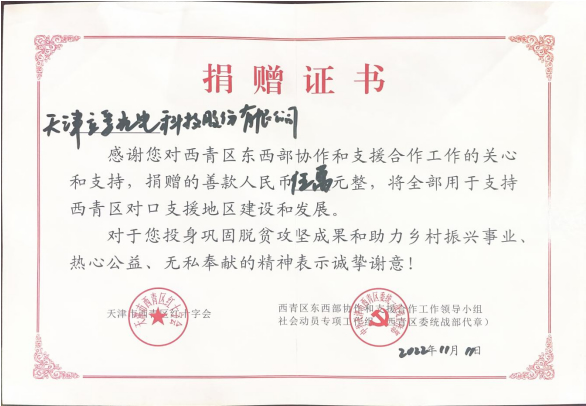 捐赠证书
天津 科技股份有限公司
感谢您对西青区东西部协作和支援合作工作的关心
和支持，捐赠的善款人民币伍萬元整，将全部用于支持
西青区对口支援地区建设和发展。
对于您投身巩固脱贫攻坚成果和助力乡村振兴事业、
热心公益、无私奉献的精神表示诚挚谢意！
天津市西青区红十字会
西青区东西部协作和支援合作工作领导小组
社会动员专项工作组（西青区委统战部代章）
2022年11月17日